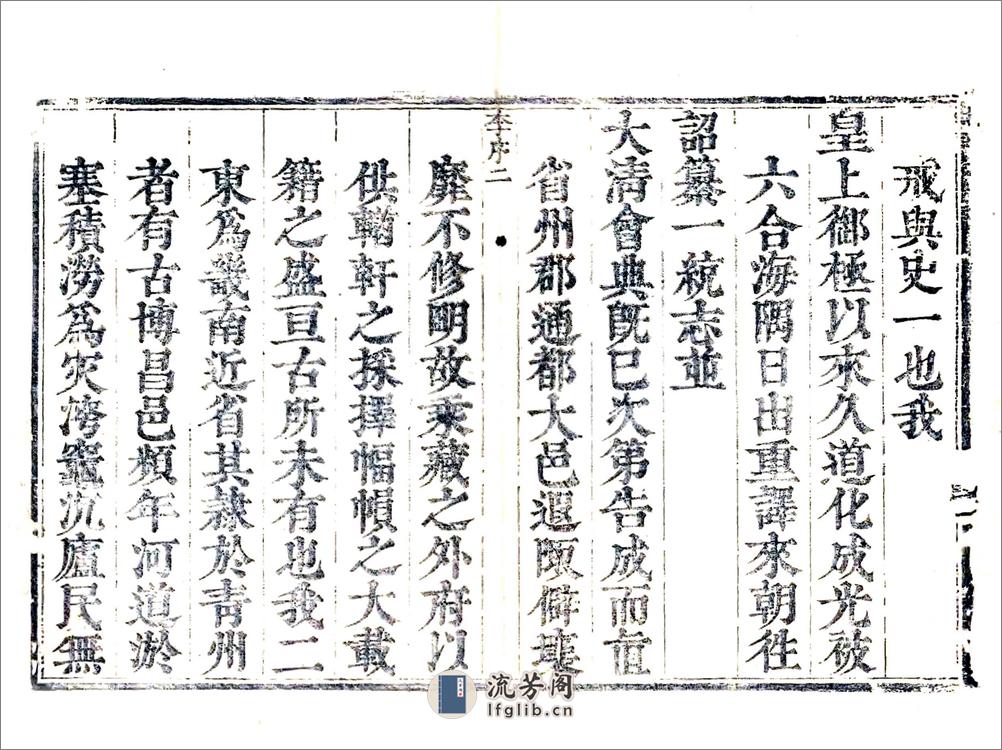 戒與史一也我
皇上御極以來久道化成光被
六合海隅日出重譯來朝徃
詔纂一統志並
大清會典旣已次第告成而直
省州郡通都大邑遐陬僻壤
李序二
靡不修明故乗藏之外府以
供輶軒之採擇幅幀之大載
籍之盛亘古所未有也我二
東爲畿南近省其隷於青州
者有古博昌邑頻年河道淤
塞積澇爲灾洿竈沉廬民無
流芳阁
lfglib.cn